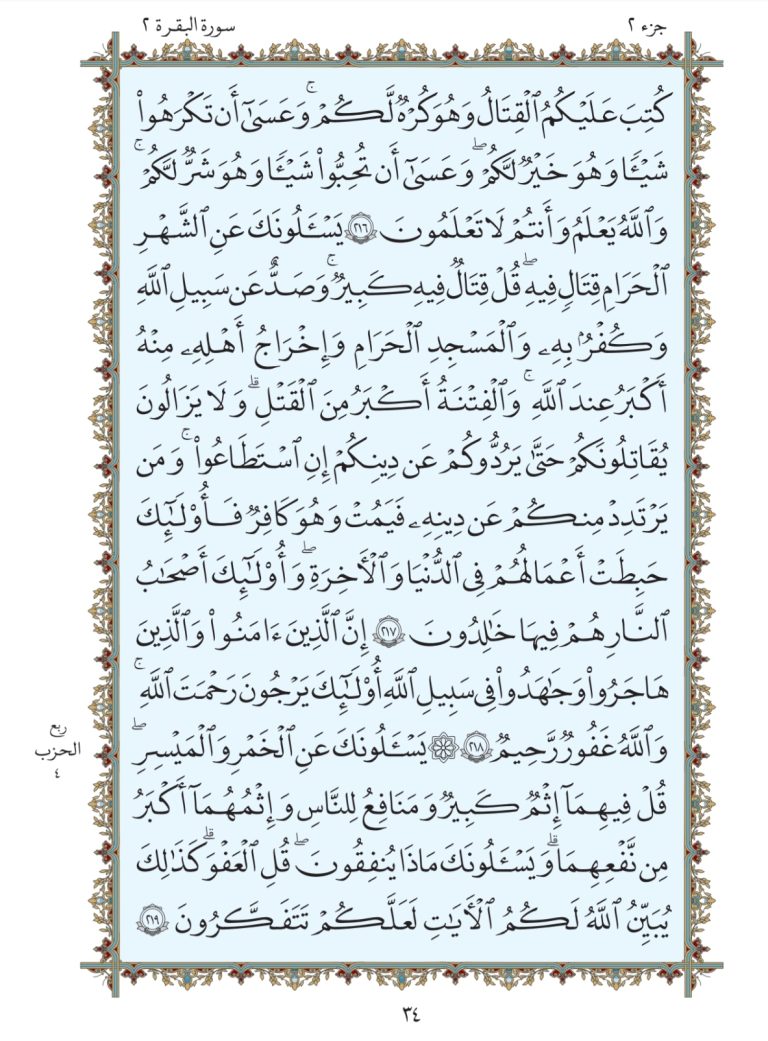 جزء ٢
سورة البقرة ٢
كُتِبَ عَلَيْكُمُ ٱلْقِتَالُ وَهُوَ كُرْهٌ لَّكُمْ ۚ وَعَسَىٰٓ أَن تَكْرَهُوا۟
شَيْـًٔا وَهُوَ خَيْرٌ لَّكُمْ ۖ وَعَسَىٰٓ أَن تُحِبُّوا۟ شَيْـًٔا وَهُوَ شَرٌّ لَّكُمْ ۚ
وَٱللَّهُ يَعْلَمُ وَأَنتُمْ لَا تَعْلَمُونَ ٢١٦ يَسْـَٔلُونَكَ عَنِ ٱلشَّهْرِ
ٱلْحَرَامِ قِتَالٍ فِيهِ ۖ قُلْ قِتَالٌ فِيهِ كَبِيرٌ ۚ وَصَدٌّ عَن سَبِيلِ ٱللَّهِ
وَكُفْرٌۢ بِهِۦ وَٱلْمَسْجِدِ ٱلْحَرَامِ وَإِخْرَاجُ أَهْلِهِۦ مِنْهُ
أَكْبَرُ عِندَ ٱللَّهِ ۚ وَٱلْفِتْنَةُ أَكْبَرُ مِنَ ٱلْقَتْلِ ۗ وَلَا يَزَالُونَ
يُقَاتِلُونَكُمْ حَتَّىٰ يَرُدُّوكُمْ عَن دِينِكُمْ إِنِ ٱسْتَطَاعُوا۟ ۚ وَمَن
يَرْتَدِدْ مِنكُمْ عَن دِينِهِۦ فَيَمُتْ وَهُوَ كَافِرٌ فَأُو۟لَـٰٓئِكَ
حَبِطَتْ أَعْمَالُهُمْ فِى ٱلدُّنْيَا وَٱلْـَٔاخِرَةِ ۖ وَأُو۟لَـٰٓئِكَ أَصْحَابُ
ٱلنَّارِ هُمْ فِيهَا خَالِدُونَ ٢١٧ إِنَّ ٱلَّذِينَ ءَامَنُوا۟ وَٱلَّذِينَ
هَاجَرُوا۟ وَجَاهَدُوا۟ فِى سَبِيلِ ٱللَّهِ أُو۟لَـٰٓئِكَ يَرْجُونَ رَحْمَتَ ٱللَّهِ ۚ
وَٱللَّهُ غَفُورٌ رَّحِيمٌ ٢١٨ ۞ يَسْـَٔلُونَكَ عَنِ ٱلْخَمْرِ وَٱلْمَيْسِرِ ۖ
قُلْ فِيهِمَآ إِثْمٌ كَبِيرٌ وَمَنَافِعُ لِلنَّاسِ وَإِثْمُهُمَآ أَكْبَرُ
مِن نَّفْعِهِمَا ۗ وَيَسْـَٔلُونَكَ مَاذَا يُنفِقُونَ ۖ قُلِ ٱلْعَفْوَ ۗ كَذَٰلِكَ
يُبَيِّنُ ٱللَّهُ لَكُمُ ٱلْـَٔايَـٰتِ لَعَلَّكُمْ تَتَفَكَّرُونَ ٢١٩
ربع
الحزب
٤
٣٤